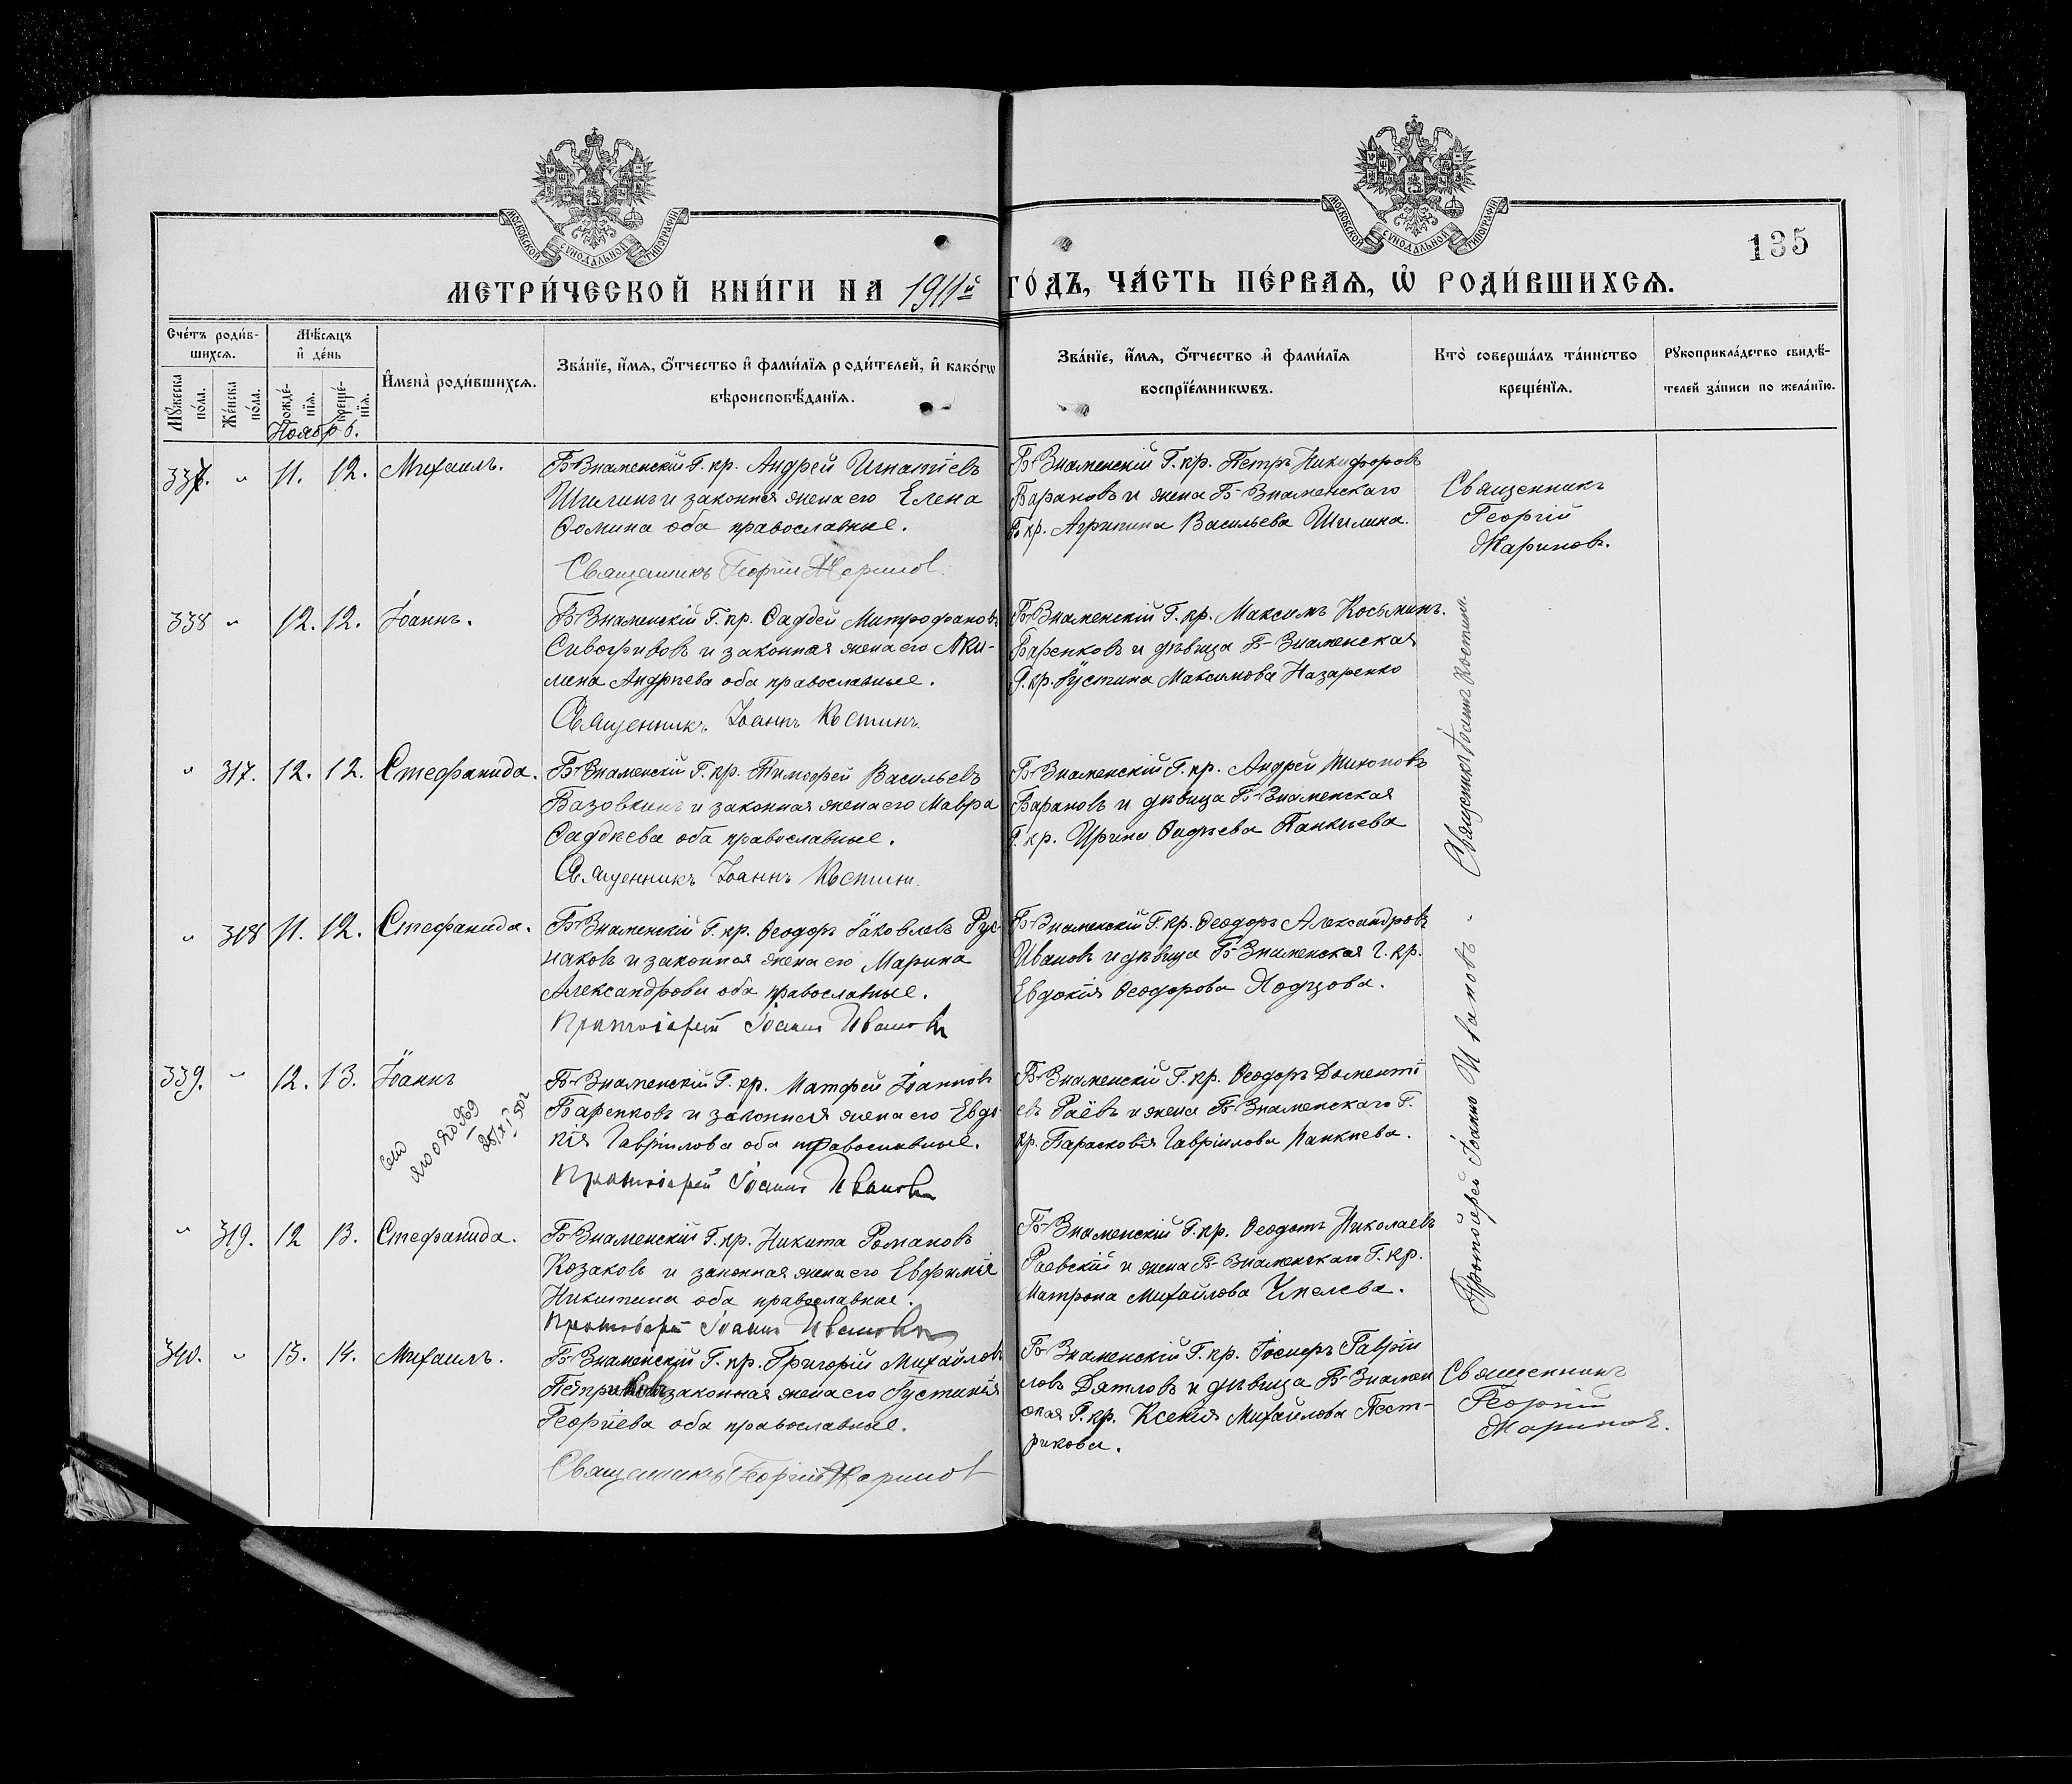 135
МОСКОВСКОЙ СѴНОДАЛЬНОЙ ТИПОГРАФІИ
МОСКОВСКОЙ СѴНОДАЛЬНОЙ ТИПОГРАФІИ
МЕТРИ́ЧЕСКОЙ КНИ́ГИ НА 1911й ГО́ДЪ, ЧА́СТЬ ПЕ́РВАѦ, Ѡ҆ РОДИ́ВШИХСѦ.
Сче́тъ роди́в-
шихсѧ.
Мѣ́сѧцъ
и҆ де́нь
Мꙋ́жеска
по́ла.
Же́нска
по́ла.
рожде́-
нїѧ.
креще́-
нїѧ.
И҆мена̀ роди́вшихсѧ.
Зва́нїе, и҆́мѧ, ѻ҆́тчество и҆ фами́лїѧ роди́телей, и҆ како́гѡ
вѣроисповѣ́данїѧ.
Зва́нїе, и҆́мѧ, ѻ҆́тчество и҆ фами́лїѧ
воспрїе́мникѡвъ.
Кто̀ соверша́лъ та́инство
креще́нїѧ.
Рꙋкоприкла́дство свидѣ́-
телей за́писи по жела́нїю.
Ноябрь.
337. " 11. 12. Михаилъ.
Б-Знаменскій Г. кр. Андрей Игнатіевъ
Шилинъ и законная жена его Елена
Ѳомина оба православные.
Священникъ Георгій Жариновъ.
Б-Знаменскій Г. кр. Петръ Никифоровъ
Барановъ и жена Б-Знаменскаго
Г. кр. Агрипина Васильева Шилина.
Священникъ
Георгій
Жариновъ.
338 " 12. 12. Іоаннъ.
Б-Знаменскій Г. кр. Ѳаддей Митрофановъ
Сивогривовъ и законная жена его Аки-
лина Андреева оба православные.
Священникъ Іоаннъ Костинъ.
Б-Знаменскій Г. кр. Максимъ Косьминъ.
Баренковъ и дѣвица Б-Знаменская
Г. кр. Іустина Максимова Назаренко
Священникъ Іоаннъ Костинъ.
" 317. 12. 12. Стефанида.
Б-Знаменскій Г. кр. Тимофей Васильевъ
Базовкинъ и законная жена его Мавра
Ѳаддеева оба православные.
Священникъ Іоаннъ Костинъ.
Б-Знаменскій Г. кр. Андрей
Барановъ и дѣвица Б-Знаменская
Г. кр. Ирина Панкнева
" 318 11. 12. Стефанида.
Б-Знаменскій Г. кр. Ѳеодоръ Іаковлевъ Рус-
наковъ и законная жена его Марина
Александрова оба православные.
Протоіерей Іоаннъ Ивановъ
Б-Знаменскій Г. кр. Ѳеодоръ Александровъ
Ивановъ и дѣвица Б-Знаменская Г. кр.
Евдокія Ѳеодорова
Протоіерей Іоаннъ Ивановъ
339. " 12. 13. Іоаннъ
Б-Знаменскій Г. кр. Матфей Іоанновъ
Баренковъ и законная жена его Евдо-
кія Гавріилова оба православные.
Протоіерей Іоаннъ Ивановъ
Б-Знаменскій Г. кр. Ѳеодоръ Доменті
евъ Раёвъ и жена Б-Знаменскаго Г.
кр. Парасковія Гавріилова Панкнева.
" 319. 12 13. Стефанида.
Б-Знаменскій Г. кр. Никита Романовъ
Козаковъ и законная жена его Евфимія
Никитина оба православные.
Протоіерей Іоаннъ Ивановъ
Б-Знаменскій Г. кр. Ѳеодотъ Николаевъ
Раевскій и жена Б-Знаменскаго Г. кр.
Матрона Михайлова
340. " 13. 14. Михаилъ.
Б-Знаменскій Г. кр. Григорій Михайловъ
законная жена его Іустинія
Георгіева оба православные.
Священникъ Георгій Жариновъ
Б-Знаменскій Г. кр. Іосифъ Гавріи
ловъ Дятловъ и дѣвица Б-Знамен
ская Г. кр. Ксенія Михайлова Пест-
рикова.
Священникъ
Георгій
Жариновъ.